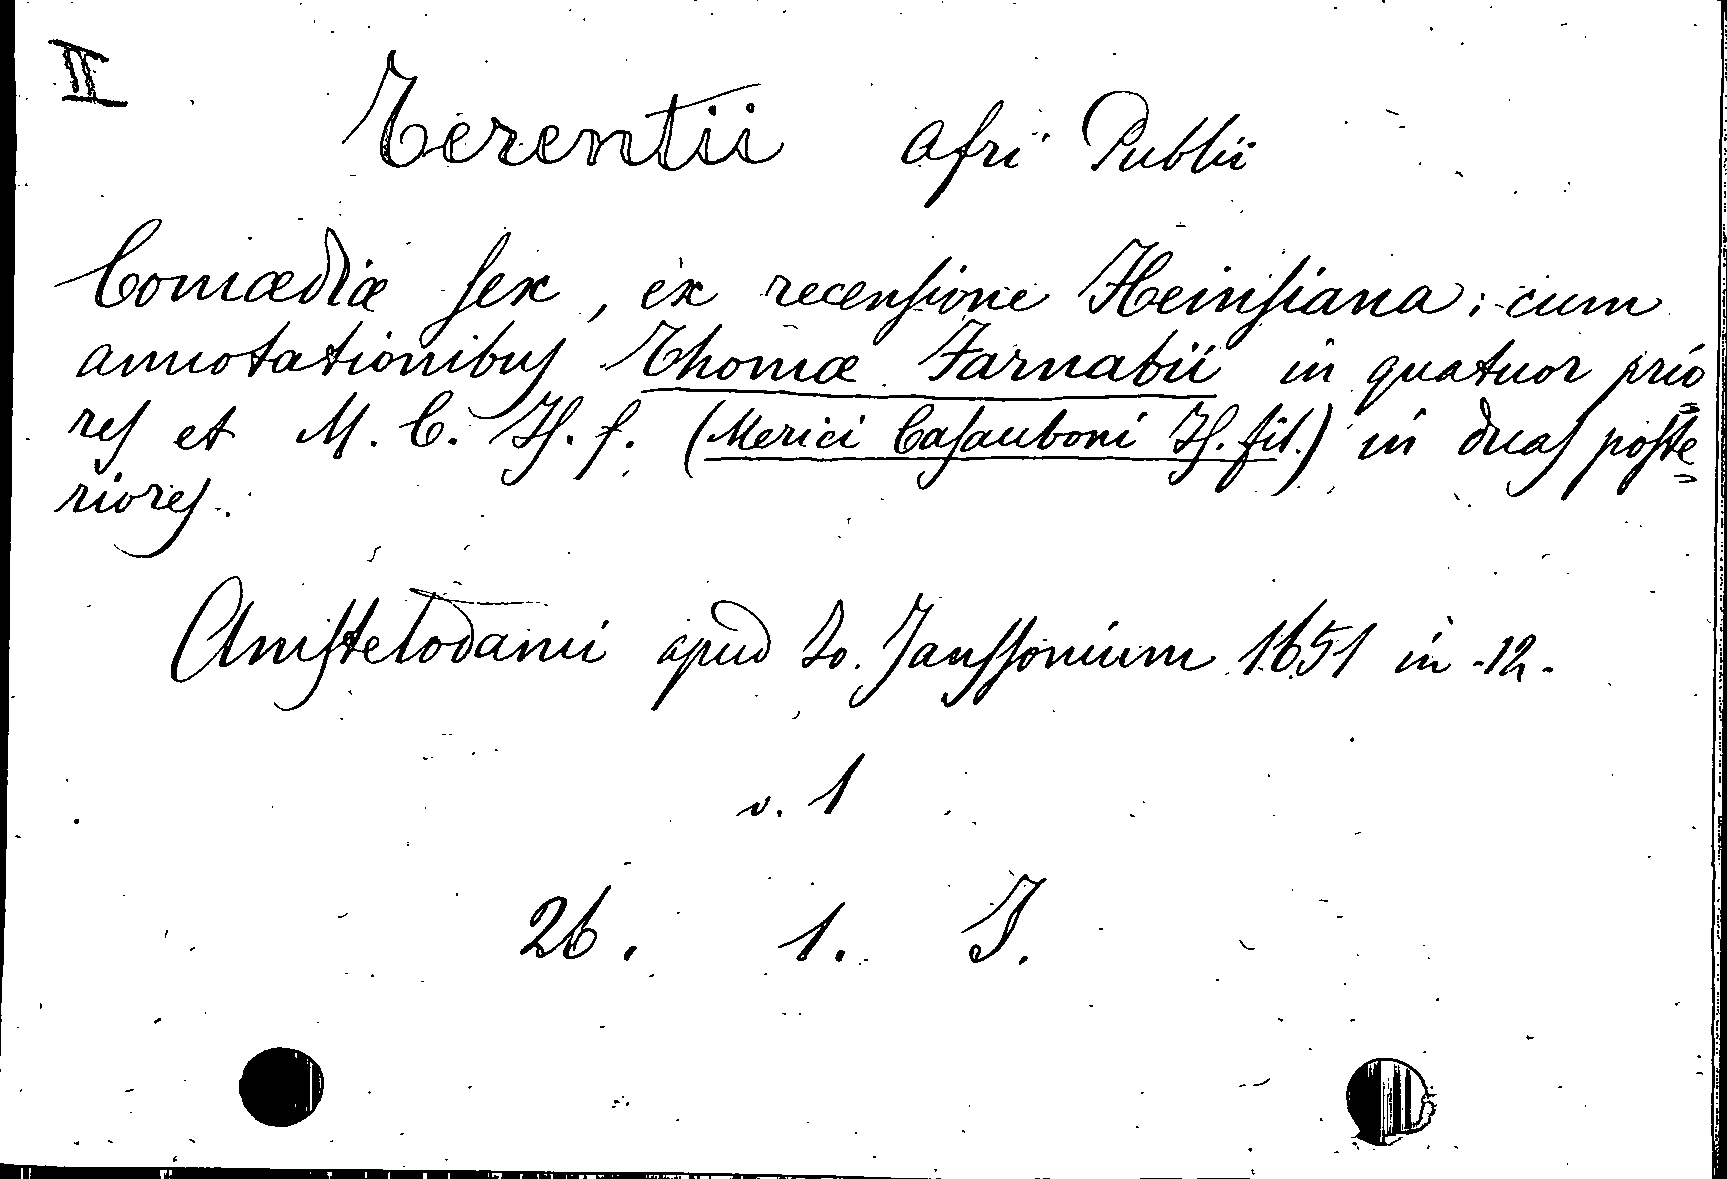 II
Terentii Afri Publii
Comœdiæ sex, ex recensione Heinsiana: cum
annotationibus Thomæ Farnabii in quatuor prio=
res et M. C. Is. f. (Merici Casauboni Is. fil.) in duas poste=
riores.
Amstelodami apud Jo. Janssonium 1651 in -12-
v. 1
26. 1. J.